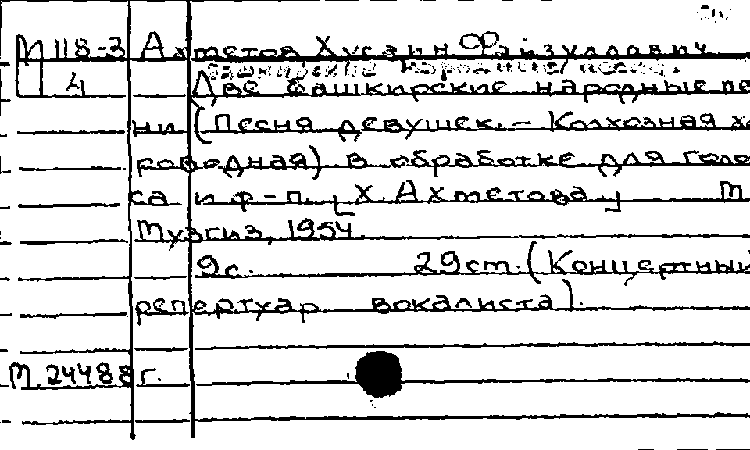 М 118-3 Ахметов Хусаин Файзуллович
4 Две башкирские народные пе
ни (Песня девушек. – Колхозная хо
роводная) в обработке для голо
са и ф-п. [Х. Ахметова] М
Музгиз, 1954.
9с. 29ст. (Концертный
репертуар вокалиста).
М. 24488г.